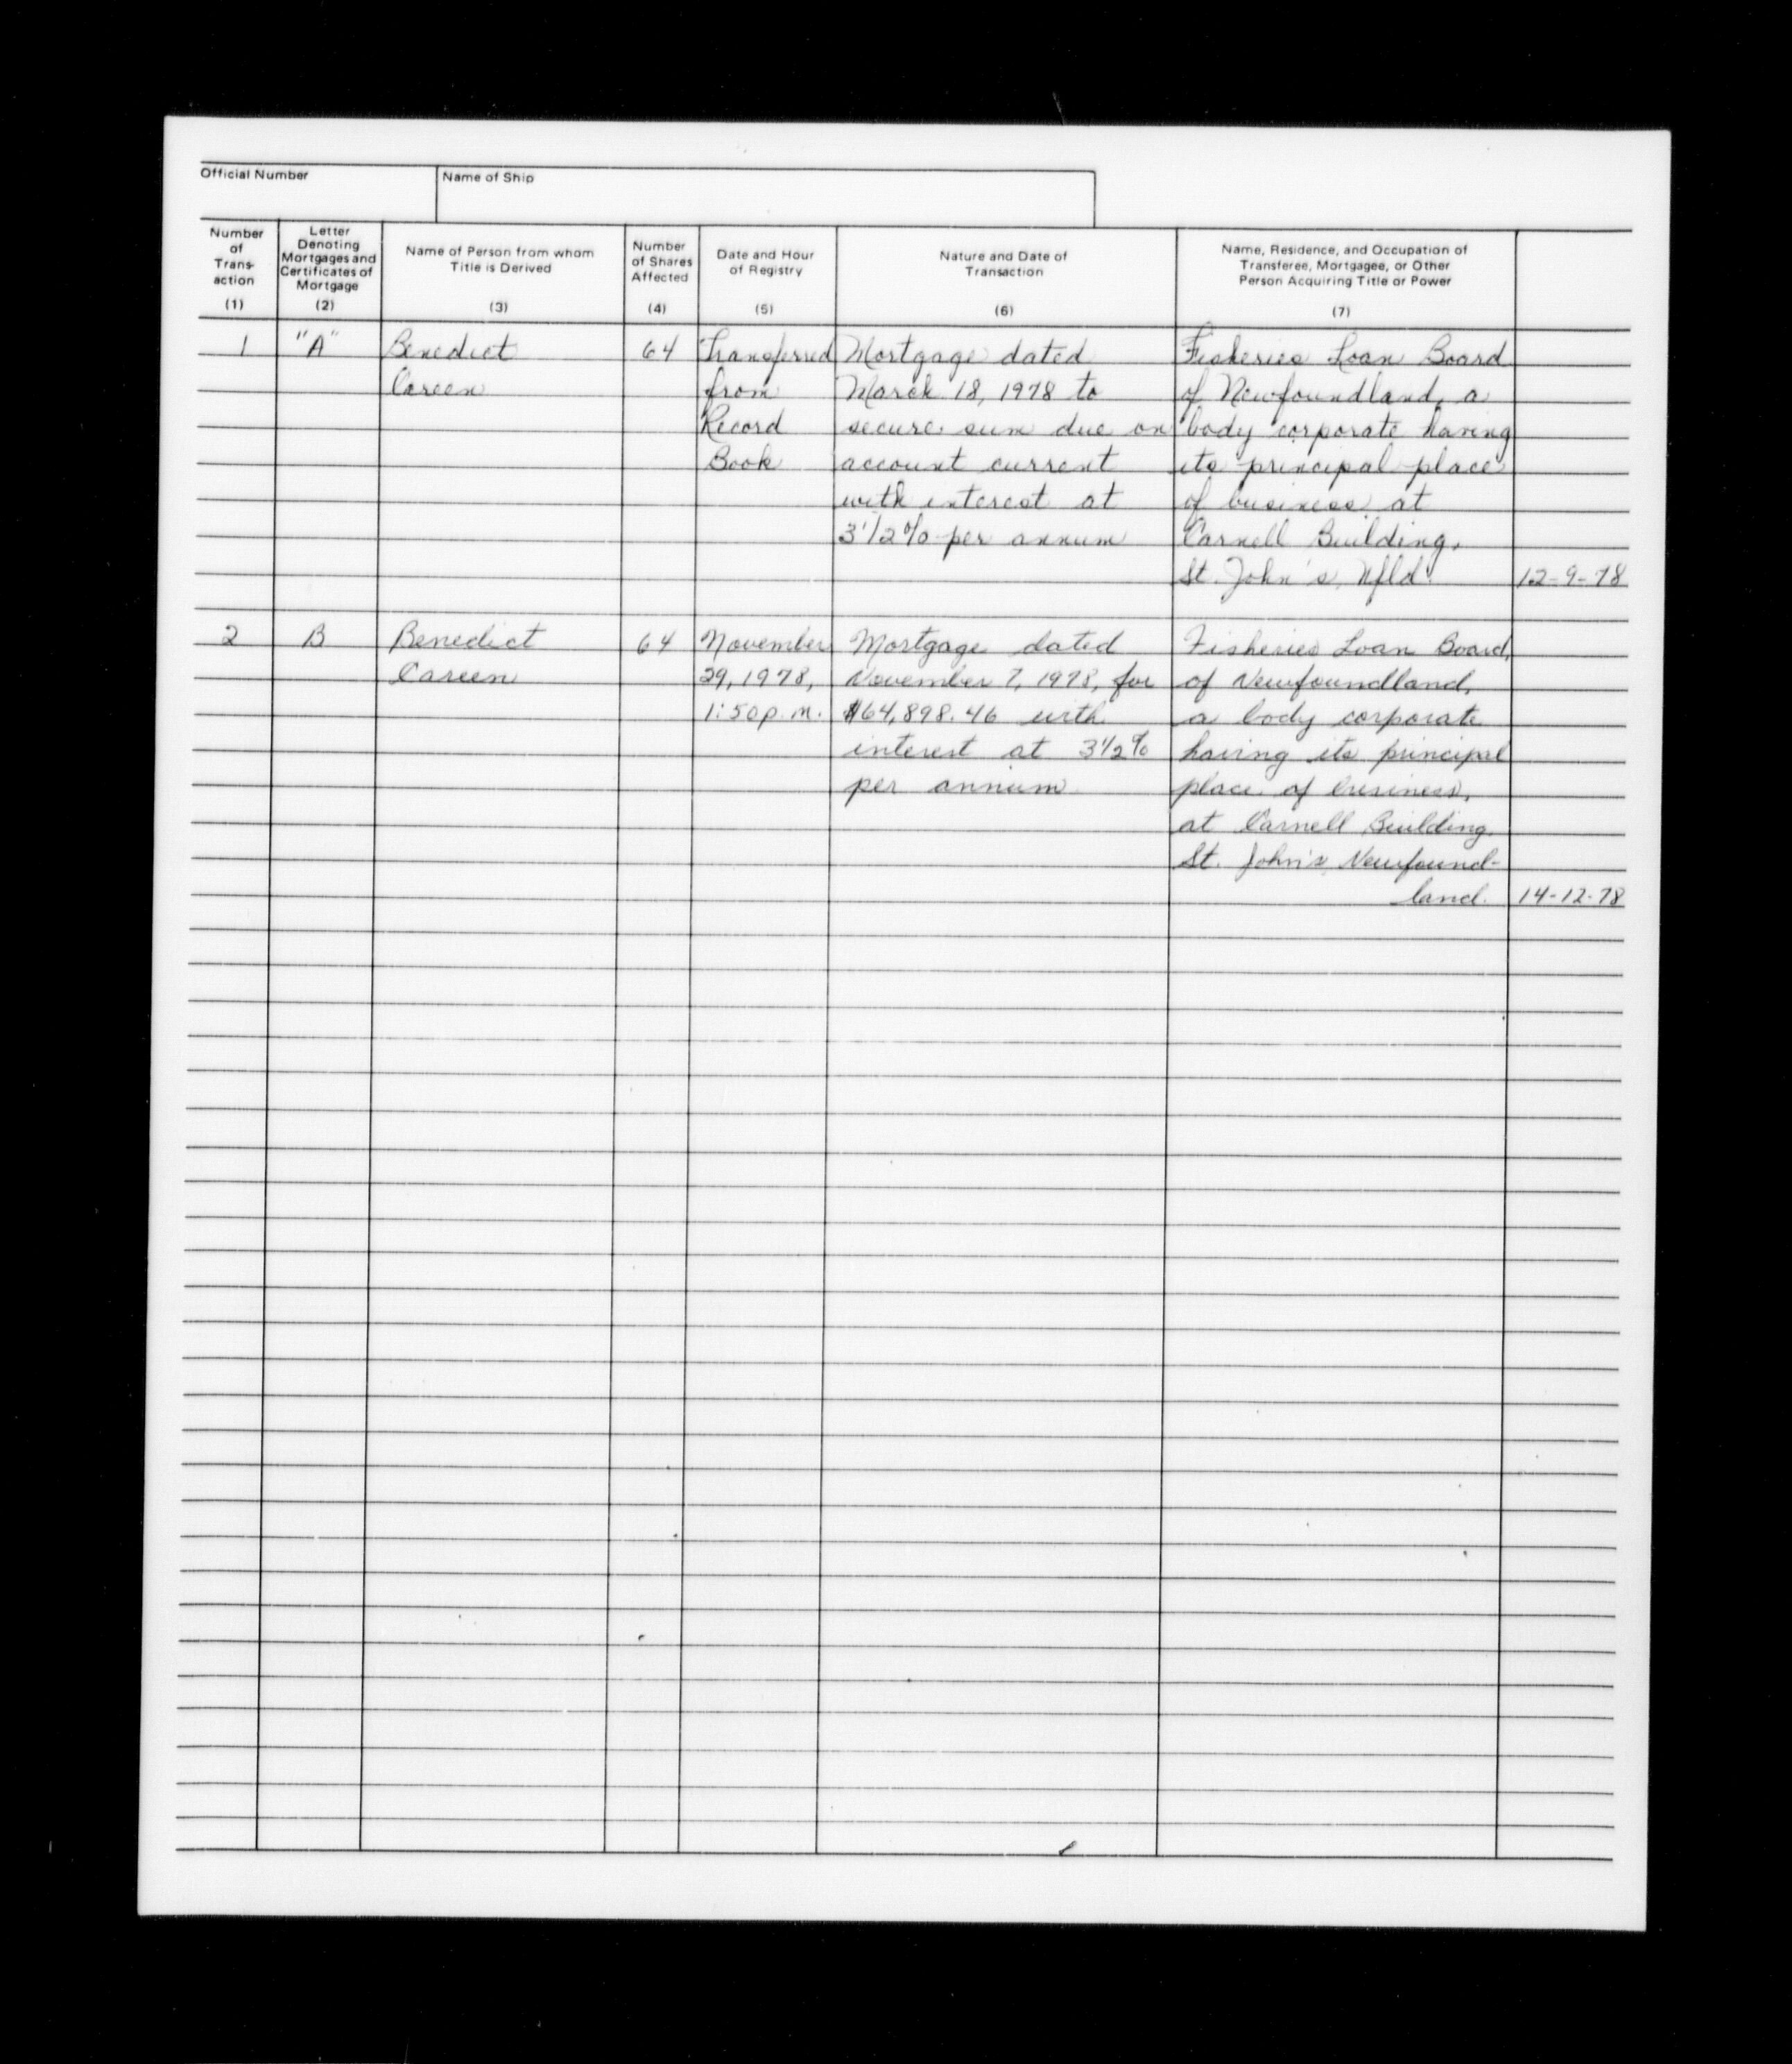 Official Number
Name of Ship
Number of Trans-action (1)
Letter Denoting Mortgages and Certificates of Mortgage (2)
Name of Person from whom Title is Derived (3)
Number of Shares Affected (4)
Date and Hour of Registry (5)
Nature and Date of Transaction (6)
Name, Residence, and Occupation of Transferee, Mortgagee, or Other Person Acquiring Title or Power (7)
1 "A" Benedict 64 Transferred Mortgage dated Fisheries Loan Board
Careen from March 18, 1978 to of Newfoundland, a
Record secure sum due on body corporate having
Book account current its principal place
with interest at of business at
3 1/2 % per annum Carnell Building,
St. John's, Nfld. 12-9-78
2 B Benedict 64 November Mortgage dated Fisheries Loan Board,
Careen 29, 1978, November 7, 1978, for of Newfoundland,
1:50 p.m. $64,898.46 with a body corporate
interest at 3 1/2 % having its principal
per annum place of business,
at Carnell Building,
St. John's, Newfound-
land. 14-12-78